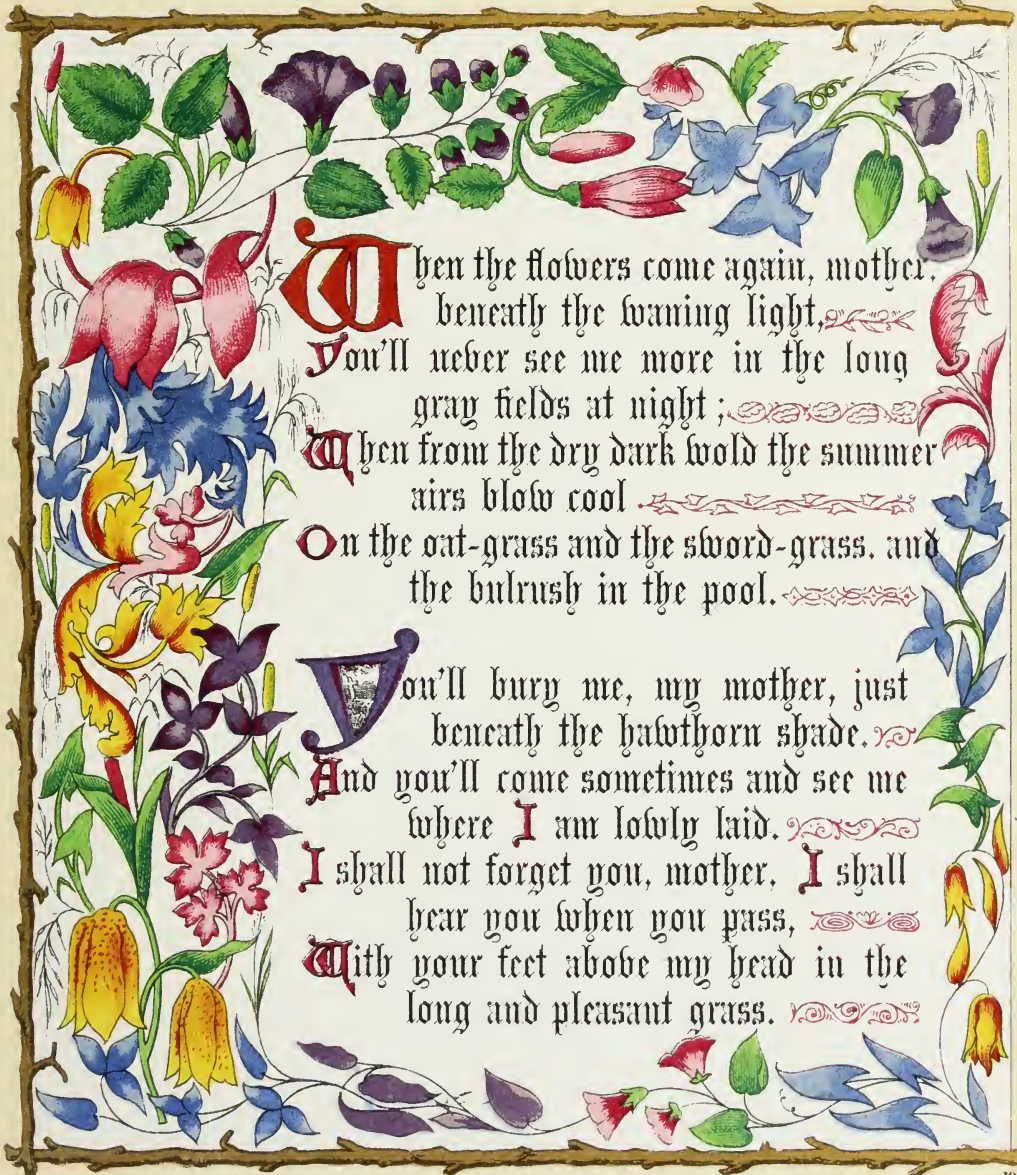 When the flowers come again, mother,
beneath the waning light,
You'll never see me more in the long
gray fields at night ;
When from the dry dark wold the summer
airs blow cool
On the oat-grass and the sword-grass, and
the bulrush in the pool.
You'll bury me, my mother, just
beneath the hawthorn shade.
And you'll come sometimes and see me
where I am lowly laid.
I shall not forget you, mother, I shall
hear you when you pass,
With your feet above my head in the
long and pleasant grass.